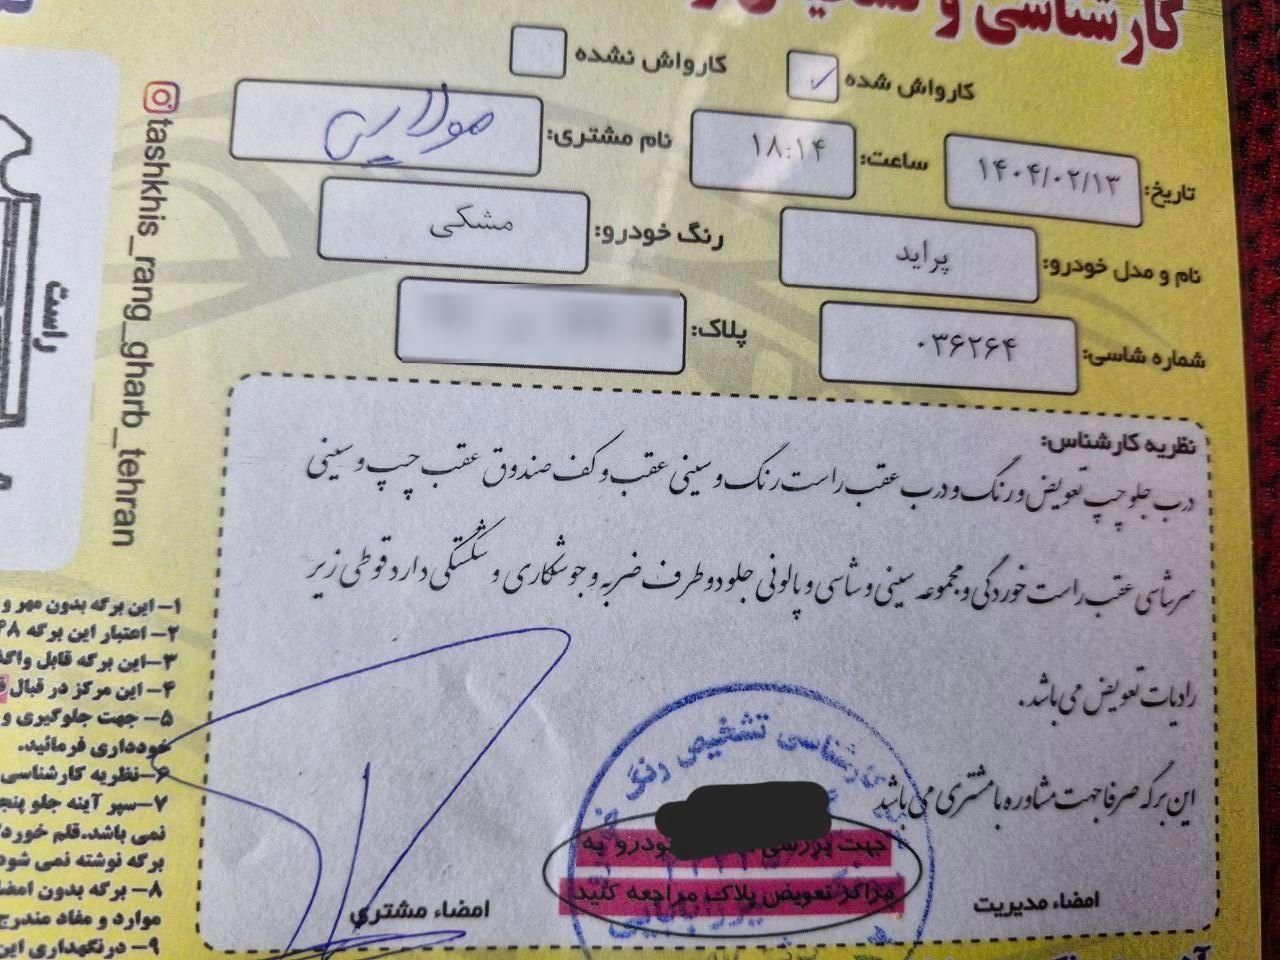 کارشناسی و تشخیص ر
کارواش شده ✓ کارواش نشده
تاریخ: ۱۴۰۴/۰۲/۱۳ ساعت: ۱۸:۱۴ نام مشتری: مولایی
نام و مدل خودرو: پراید رنگ خودرو: مشکی
شماره شاسی: ۰۳۶۲۶۴ پلاک:
نظریه کارشناس:
درب جلو چپ تعویض و رنگ و درب عقب راست رنگ و سینی عقب و کف صندوق عقب چپ و سینی
سرشاسی عقب راست خوردگی و مجموعه سینی و شاسی و پالونی جلو دو طرف ضربه و جوشکاری و شکستگی دارد قوطی زیر
رادیات تعویض می باشد.
این برگه صرفا جهت مشاوره با مشتری می باشد
کارشناسی تشخیص رنگ
جهت بررسی خودرو به
مراکز تعویض پلاک مراجعه کنید
امضاء مدیریت
امضاء مشتری
tashkhis_rang_gharb_tehran
راست
۱- این برگه بدون مهر و
۲- اعتبار این برگه ۴۸
۳- این برگه قابل واگذ
۴- این مرکز در قبال
۵- جهت جلوگیری و
خودداری فرمائید.
۶- نظریه کارشناسی
۷- سپر آینه جلو پنج
نمی باشد. قلم خورد
برگه نوشته نمی شود
۸- برگه بدون امضا
موارد و مفاد مندرج
۹- درنگهداری این